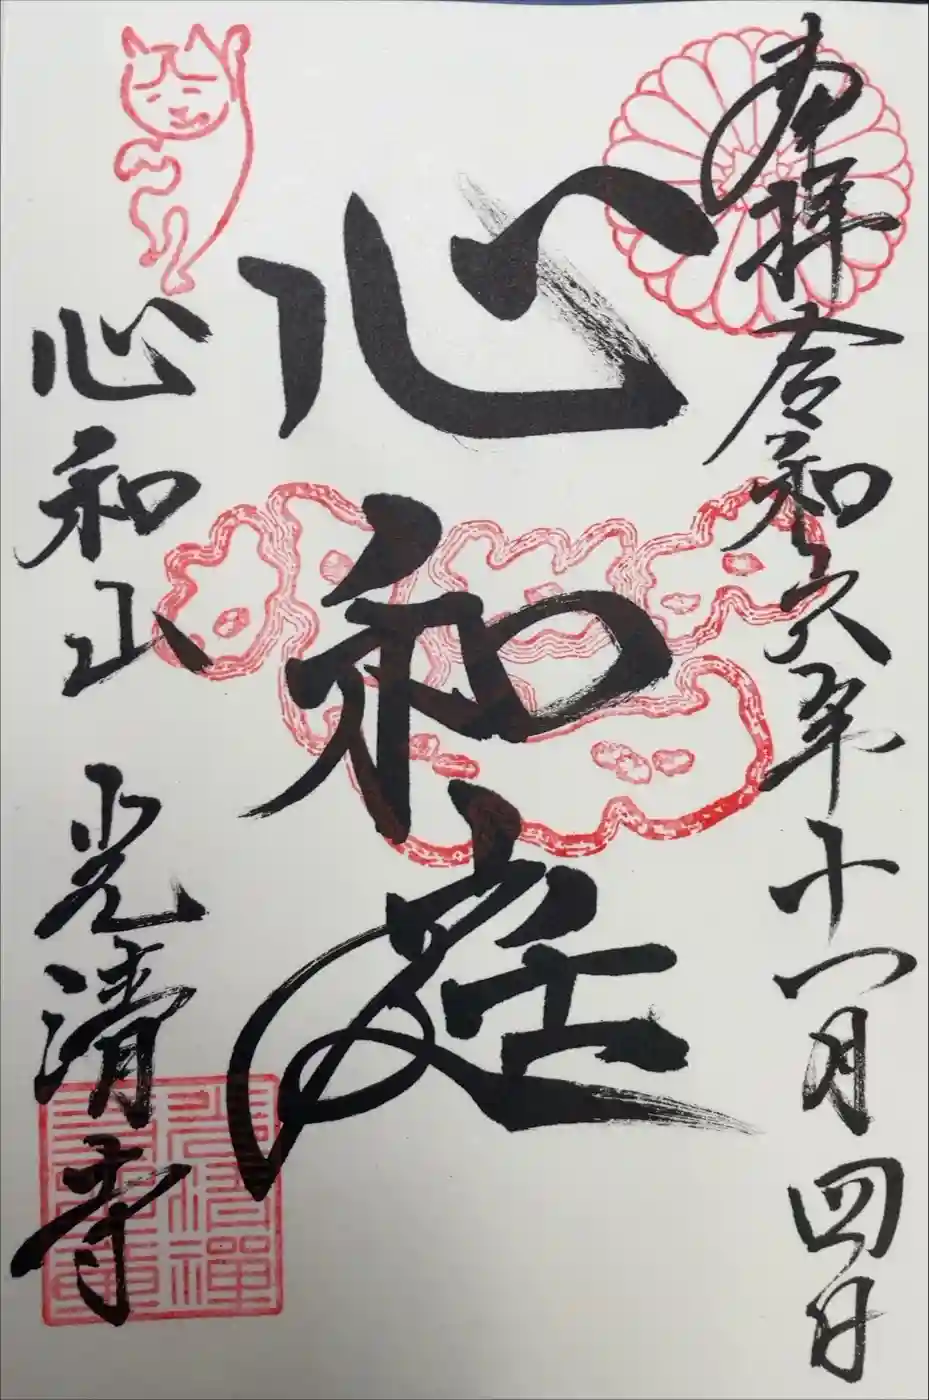 奉拝 令和六年十一月四日
心和庭
心和山 光清寺
光清禪